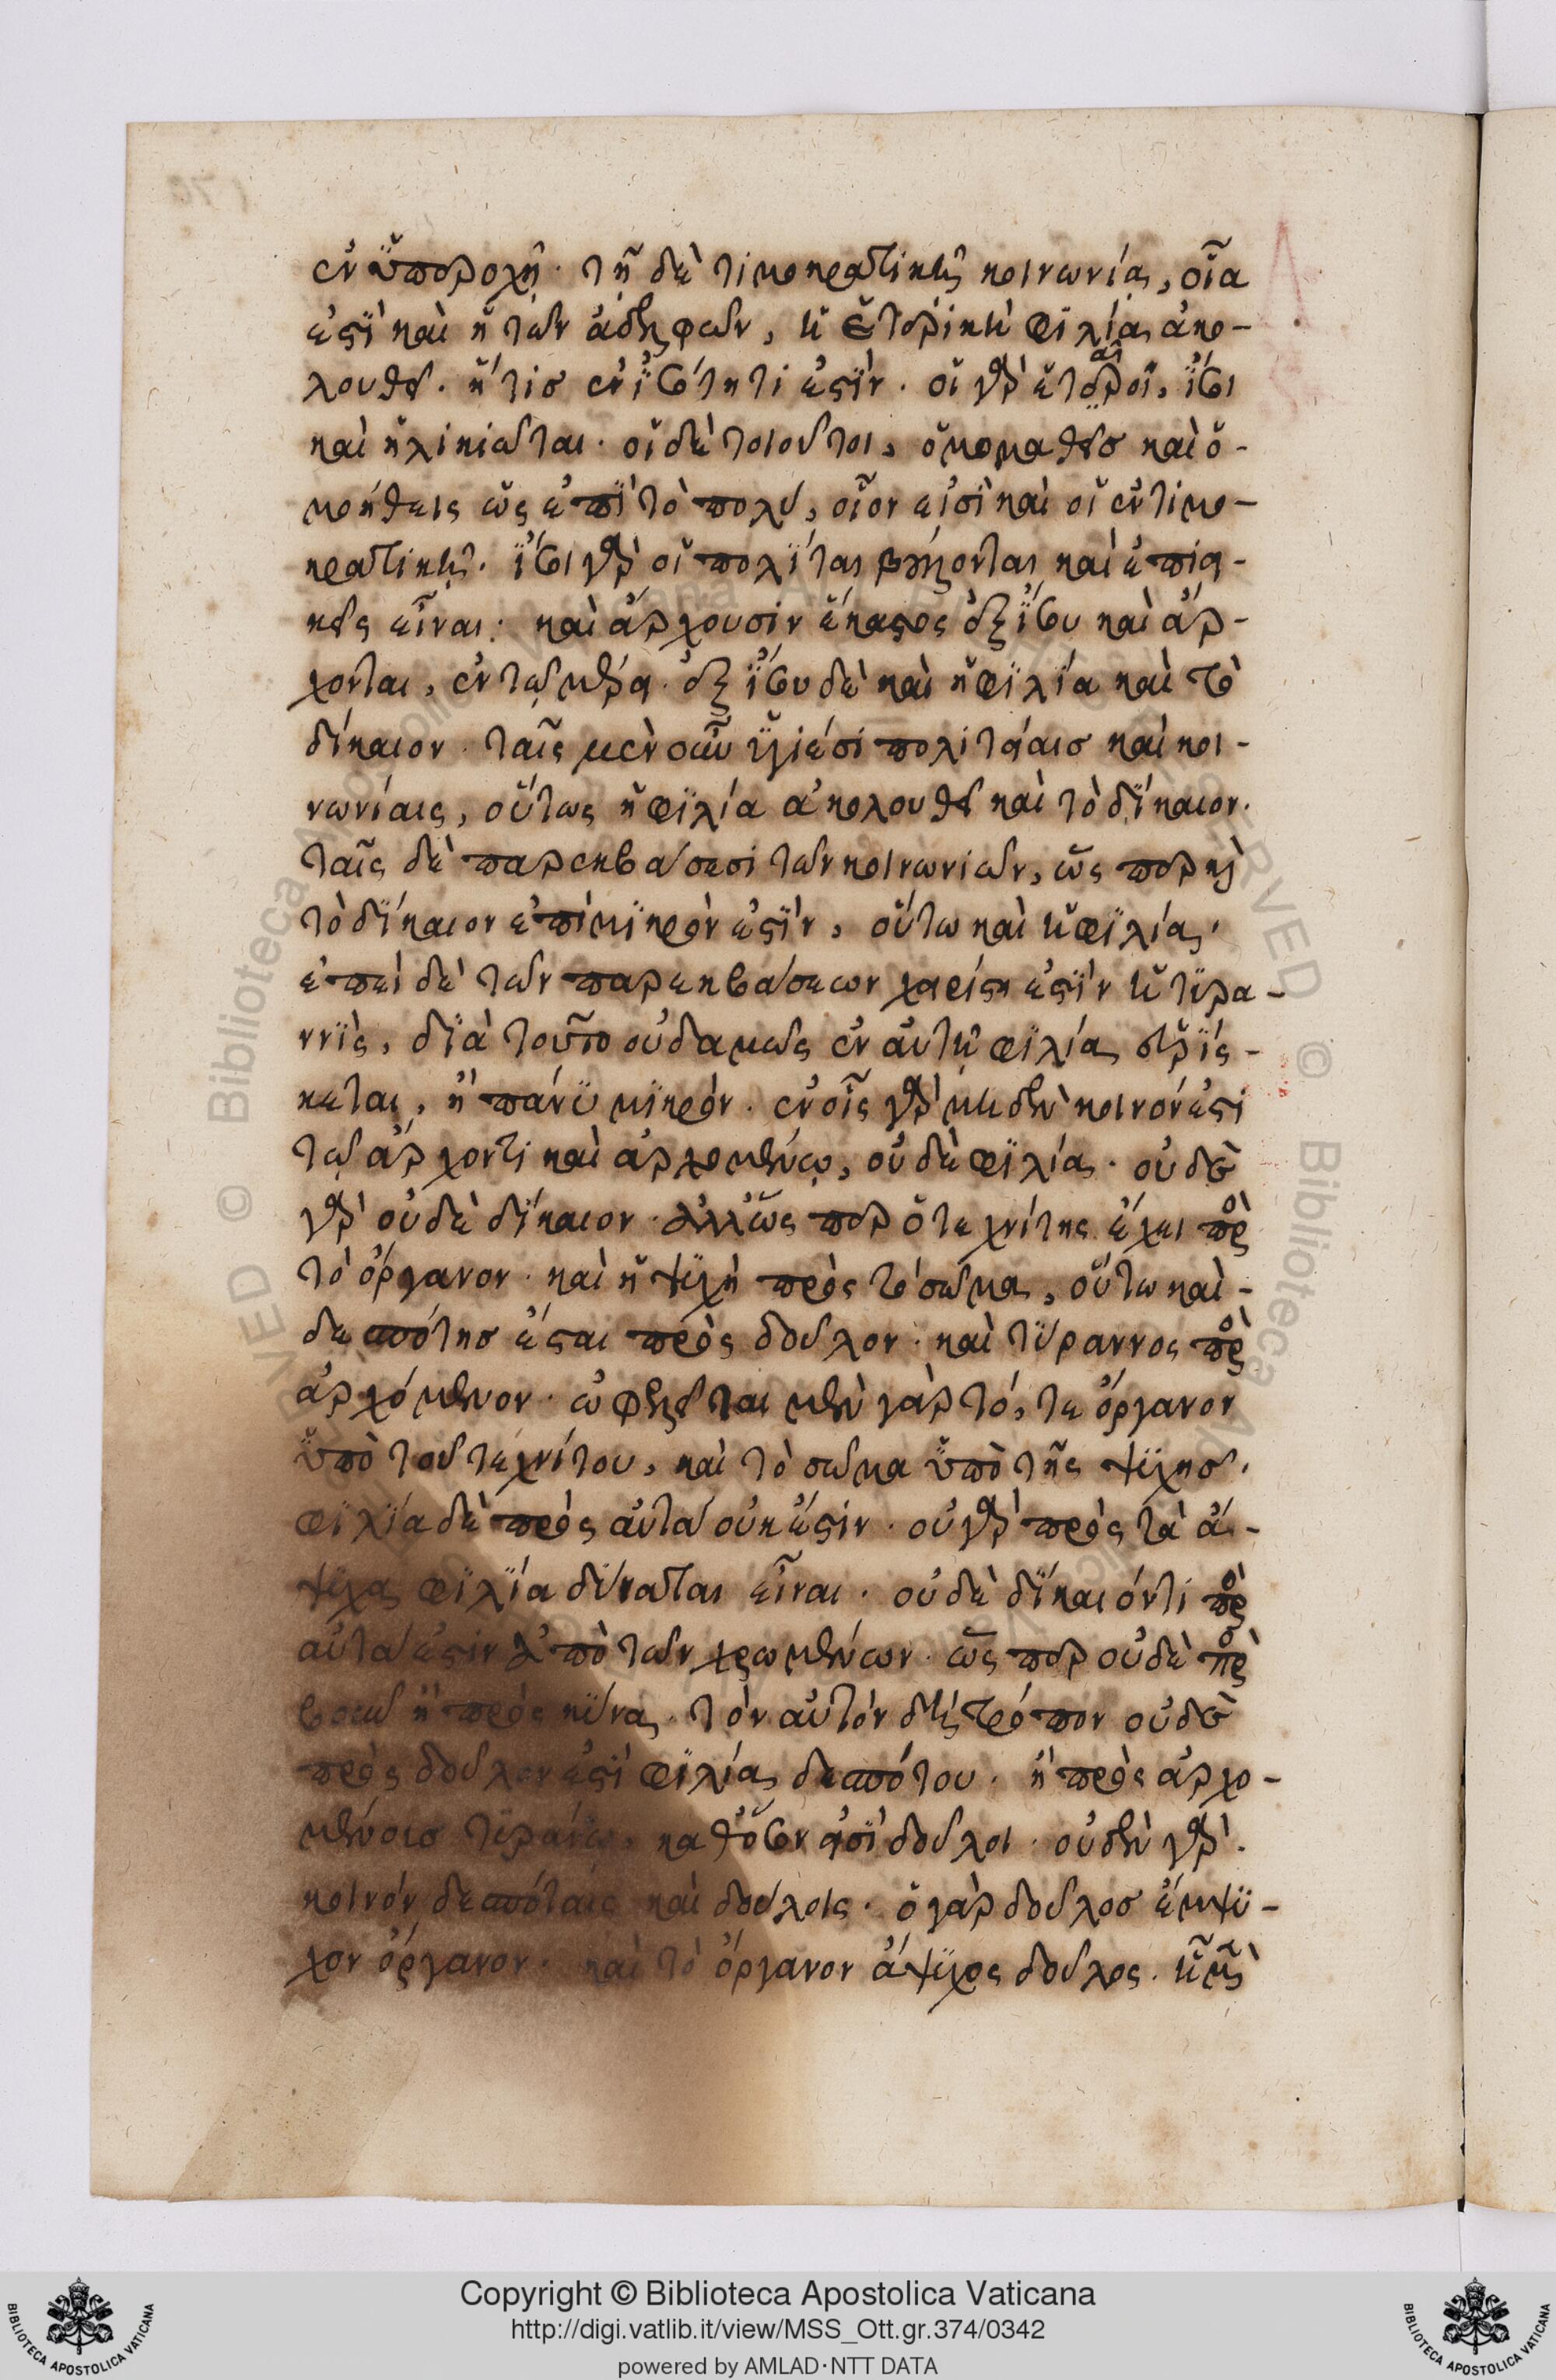 ἐν ὑπεροχῇ. τῇ δὲ τιμοκρατικῇ κοινωνία, οἵα
ἐστὶ καὶ ἡ τῶν ἀδελφῶν, ἡ ἑτερικὴ φιλία ἀκο-
λουθεῖ. ἥτις ἐν ἰσότητι ἐστὶν. οἱ γὰρ ἑταῖροι, ἴσοι
καὶ ἡλικιῶται. οἱ δὲ τοιοῦτοι, ὁμομαθεῖς καὶ ὁ-
μοήθεις ὡς ἐπὶ τὸ πολύ, οἷον εἰσὶ καὶ οἱ ἐν τιμο-
κρατικῇ. ἴσοι γὰρ οἱ πολίται βούλονται καὶ ἐπιει-
κεῖς εἶναι. καὶ ἄρχουσιν ἕκαστος ἐξ ἴσου καὶ ἄρ-
χονται, ἐν τῷ μέρει. ἐξ ἴσου δὲ καὶ ἡ φιλία καὶ τὸ
δίκαιον. ταῖς μὲν οὖν ὑγιέσι πολιτείαις καὶ κοι-
νωνίαις, οὕτως ἡ φιλία ἀκολουθεῖ καὶ τὸ δίκαιον.
ταῖς δὲ παρεκβάσεσι τῶν κοινωνιῶν, ὥσπερ καὶ
τὸ δίκαιον ἐπὶ μικρόν ἐστὶν, οὕτω καὶ ἡ φιλία.
ἐπεὶ δὲ τῶν παρεκβάσεων χειρίστη ἐστὶν ἡ τυρα-
ννὶς, διὰ τοῦτο οὐδαμῶς ἐν αὐτῇ φιλία εὑρίς-
κεται, ἢ πάνυ μικρόν. ἐν οἷς γὰρ μηδὲν κοινόν ἐστι
τῷ ἄρχοντι καὶ ἀρχομένῳ, οὐδὲ φιλία. οὐδὲ
γὰρ οὐδὲ δίκαιον. ἀλλ' ὥσπερ ὁ τεχνίτης ἔχει πρὸς
τὸ ὄργανον. καὶ ἡ ψυχὴ πρὸς τὸ σῶμα, οὕτω καὶ -
δεσπότης ἔσται πρὸς δοῦλον. καὶ τύραννος πρὸς
ἀρχόμενον. ὠφελεῖται μὲν γὰρ τό, τε ὄργανον
ὑπὸ τοῦ τεχνίτου, καὶ τὸ σῶμα ὑπὸ τῆς ψυχῆς.
φιλία δὲ πρὸς αὐτὰ οὐκ ἔστιν. οὐ γὰρ πρὸς τὰ ἄ-
ψυχα φιλία δύναται εἶναι. οὐδὲ δίκαιόν τι πρὸς
αὐτὰ ἐστιν ἀπὸ τῶν χρωμένων. ὥσπερ οὐδὲ πρὸς
βοῦν ἢ πρὸς κύνα. τὸν αὐτὸν δὲ τρόπον οὐδὲ
πρὸς δοῦλον ἐστὶ φιλία δεσπότου. ἢ πρὸς ἀρχο-
μένοις τυράννῳ, καθόσον εἰσὶ δοῦλοι. οὐδὲν γὰρ.
κοινόν δεσπόταις καὶ δούλοις. ὁ γὰρ δοῦλος ἔμψυ-
χον ὄργανον. καὶ τὸ ὄργανον ἄψυχος δοῦλος. ᾗ μὲν
Copyright © Biblioteca Apostolica Vaticana
http://digi.vatlib.it/view/MSS_Ott.gr.374/0342
powered by AMLAD·NTT DATA